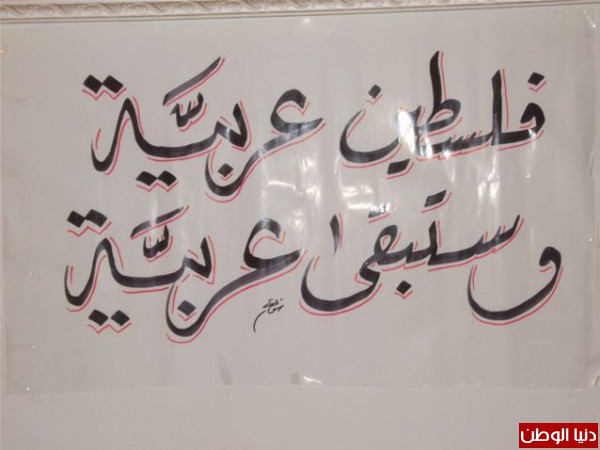 فلسطين عربيَّة
وستبقى عربيَّة
دنيا الوطن